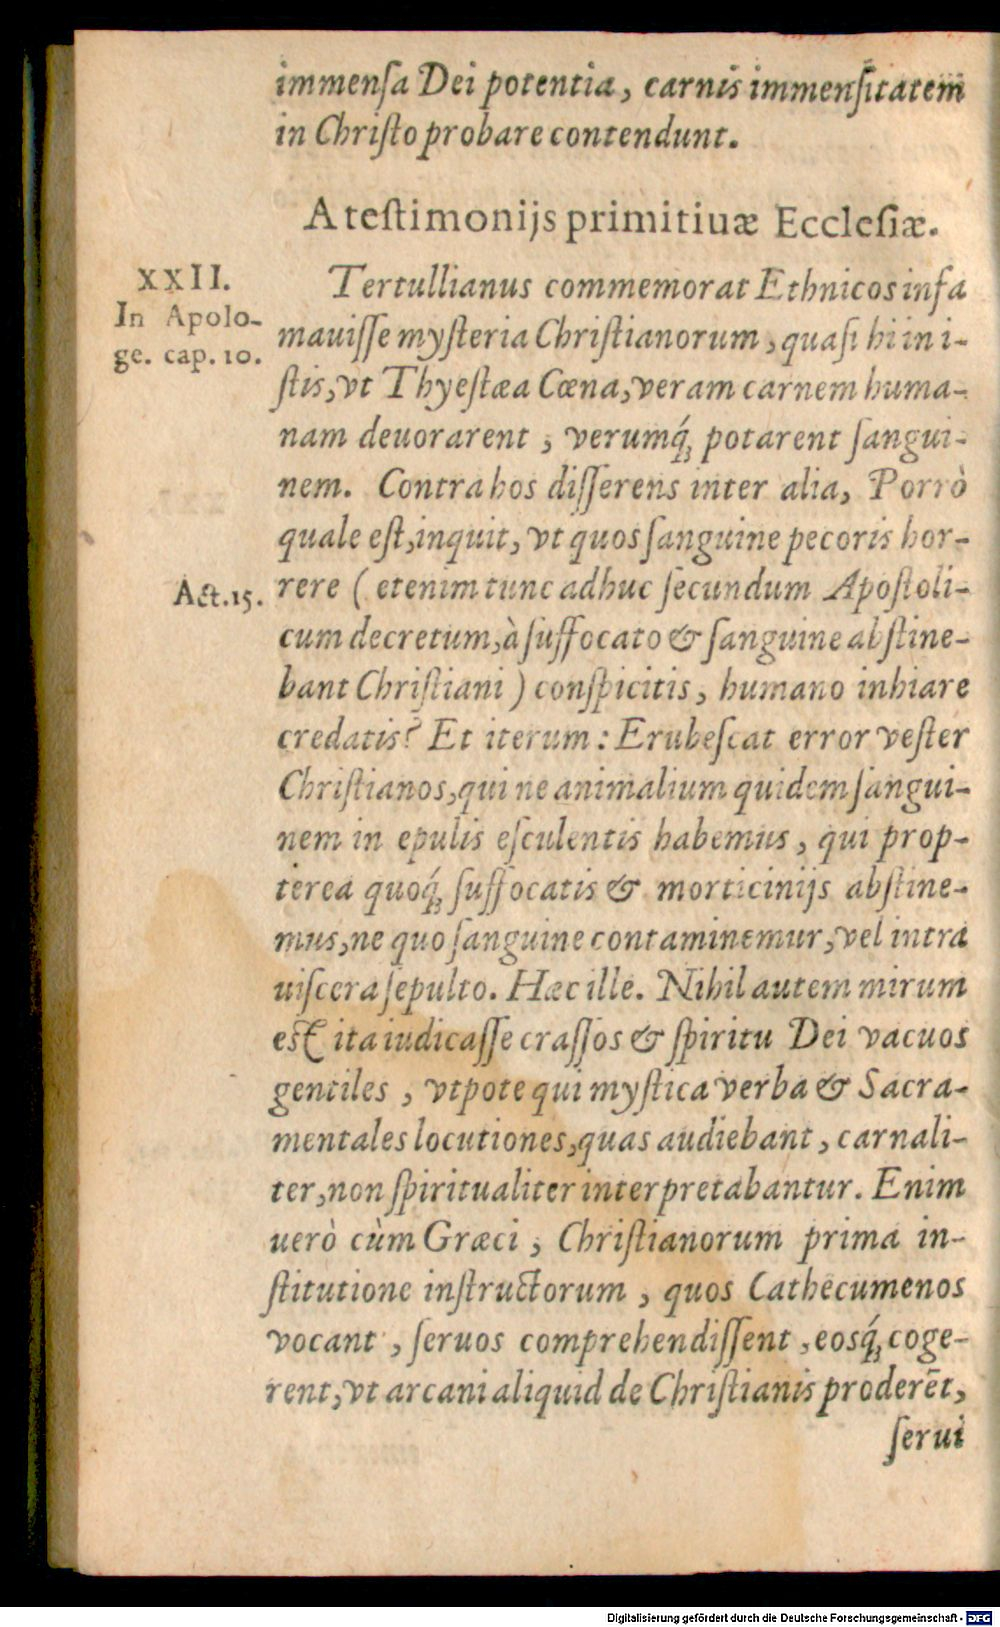 immenſa Dei potentia, carnis immenſitatem
in Chriſto probare contendunt.
A teſtimonijs primitiuæ Eccleſiæ.
XXII.
In Apolo-
ge. cap. 10.
Tertullianus commemorat Ethnicos infa
mauiſſe myſteria Chriſtianorum, quaſi hi in i-
ſtis, vt Thyeſtæa Cœna, veram carnem huma-
nam deuorarent, verumq́ꝫ potarent ſangui-
nem. Contra hos diſſerens inter alia, Porrò
quale eſt, inquit, vt quos ſanguine pecoris hor-
Act. 15.
rere (etenim tunc adhuc ſecundum Apoſtoli-
cum decretum, à ſuffocato & ſanguine abſtine-
bant Chriſtiani) conſpicitis, humano inhiare
credatis? Et iterum: Erubeſcat error veſter
Chriſtianos, qui ne animalium quidem ſangui-
nem in epulis eſculentis habemus, qui prop-
terea quoq́ꝫ ſuffocatis & morticinijs abſtine-
mus, ne quo ſanguine contaminemur, vel intra
uiſcera ſepulto. Hæc ille. Nihil autem mirum
eſt ita iudicaſſe craſſos & ſpiritu Dei vacuos
gentiles, vtpote qui myſtica verba & Sacra-
mentales locutiones, quas audiebant, carnali-
ter, non ſpiritualiter interpretabantur. Enim
uerò cùm Græci, Chriſtianorum prima in-
ſtitutione inſtructorum, quos Cathecumenos
vocant, ſeruos comprehendiſſent, eosq́ꝫ coge-
rent, vt arcani aliquid de Chriſtianis proderēt,
ſerui
Digitalisierung gefördert durch die Deutsche Forschungsgemeinschaft - DFG